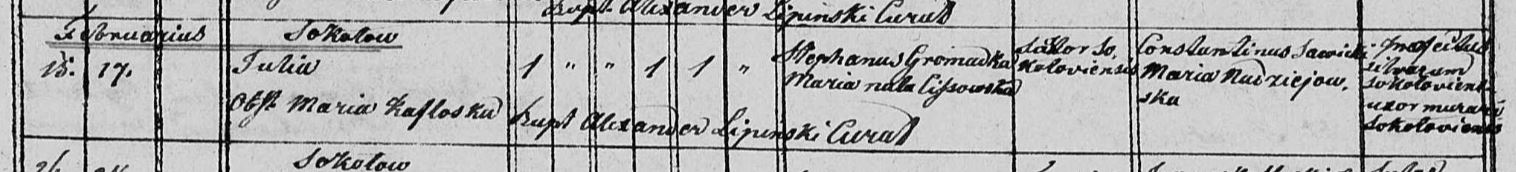 Bapt Alexander Lipinski Curat
Februarius Sokolow
15. 17. Julia 1 " " 1 1 " Stephanus Gromadka Maria nata Lissowska Sartor Sokoloviensis Constantinus Sawicki Maria Nadziejowska Praefectus silvarum Sokolovien. uxor murarii Sokoloviensis
Obst. Maria Kafloska Bapt Alexander Lipinski Curat
Sokolow